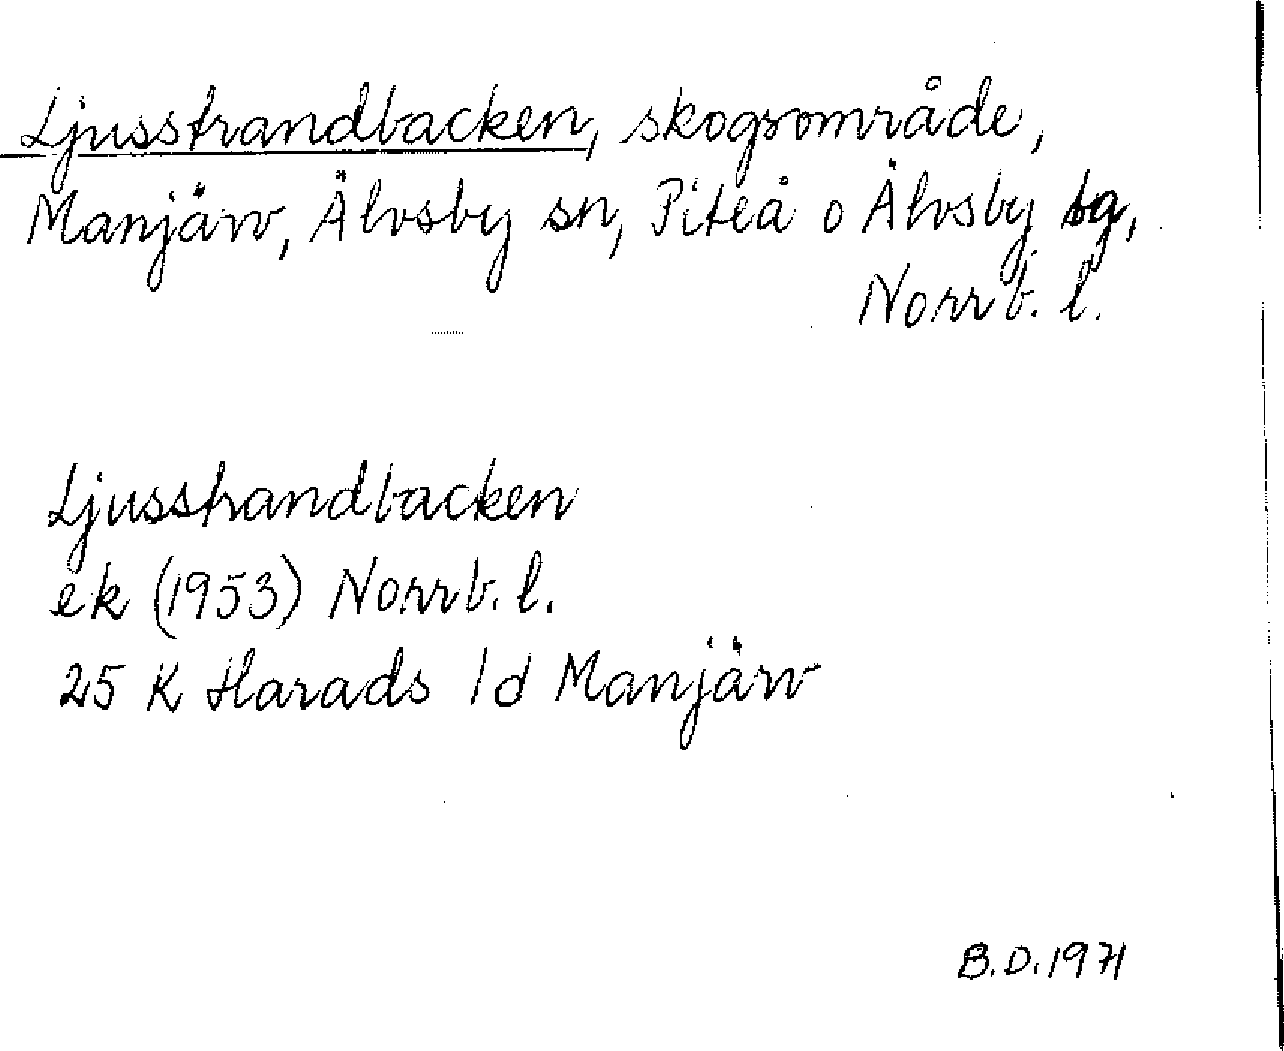 Ljusstrandbacken, skogsområde,
Manjärv, Älvsby sn, Piteå o Älvsby tg,
Norrb. l.
Ljusstrandbacken
ek (1953) Norrb. l.
25 K Harads 1d Manjärv
B.D. 1971